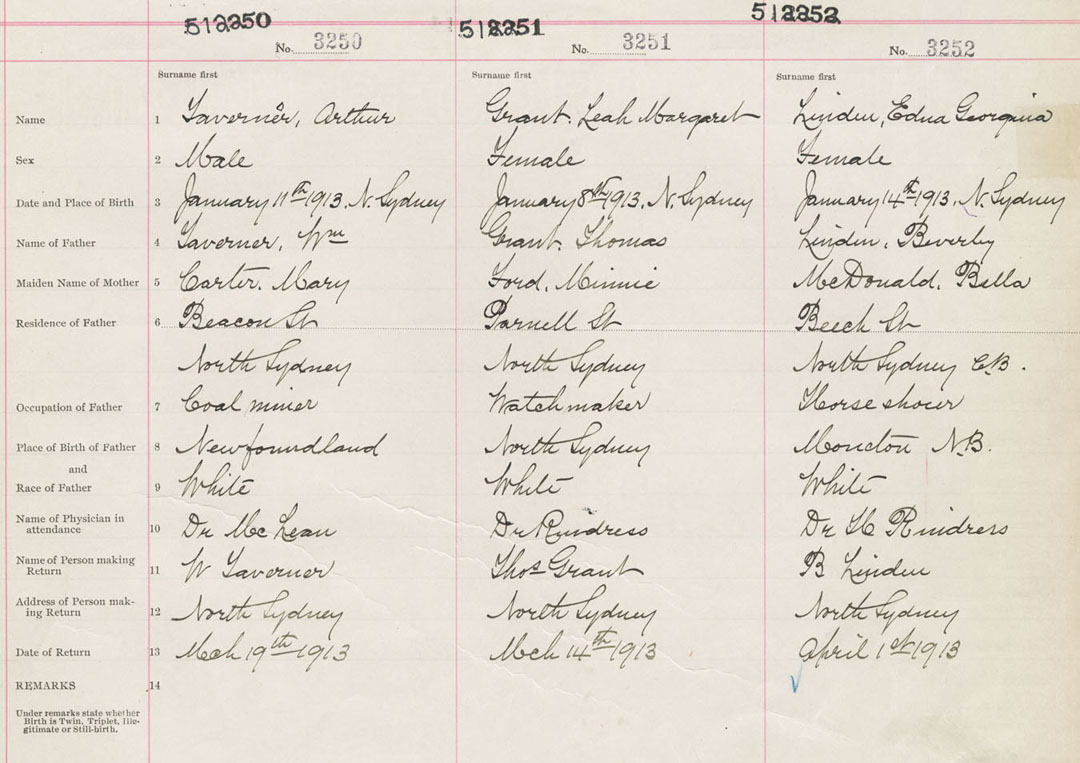 512250 512251 512252
No. 3250 No. 3251 No. 3252
Surname first Surname first Surname first
Name 1 Taverner, Arthur Grant, Leah Margaret Linden, Edna Georgina
Sex 2 Male Female Female
Date and Place of Birth 3 January 11th 1913, N. Sydney January 8th 1913, N. Sydney January 14th 1913, N. Sydney
Name of Father 4 Taverner, Wm Grant, Thomas Linden, Beverly
Maiden Name of Mother 5 Carter, Mary Ford, Minnie McDonald, Bella
Residence of Father 6 Beacon St Parnell St Beech St
North Sydney North Sydney North Sydney C.B.
Occupation of Father 7 Coal miner Watchmaker Horse shoer
Place of Birth of Father 8 Newfoundland North Sydney Moncton N.B.
and
Race of Father 9 White White White
Name of Physician in
attendance 10 Dr McLean Dr Rindress Dr H Rindress
Name of Person making
Return 11 W Taverner Thos Grant B Linden
Address of Person mak-
ing Return 12 North Sydney North Sydney North Sydney
Date of Return 13 Mch 19th 1913 Mch 14th 1913 April 1st 1913
REMARKS 14
Under remarks state whether
Birth is Twin, Triplet, Ille-
gitimate or Still-birth.